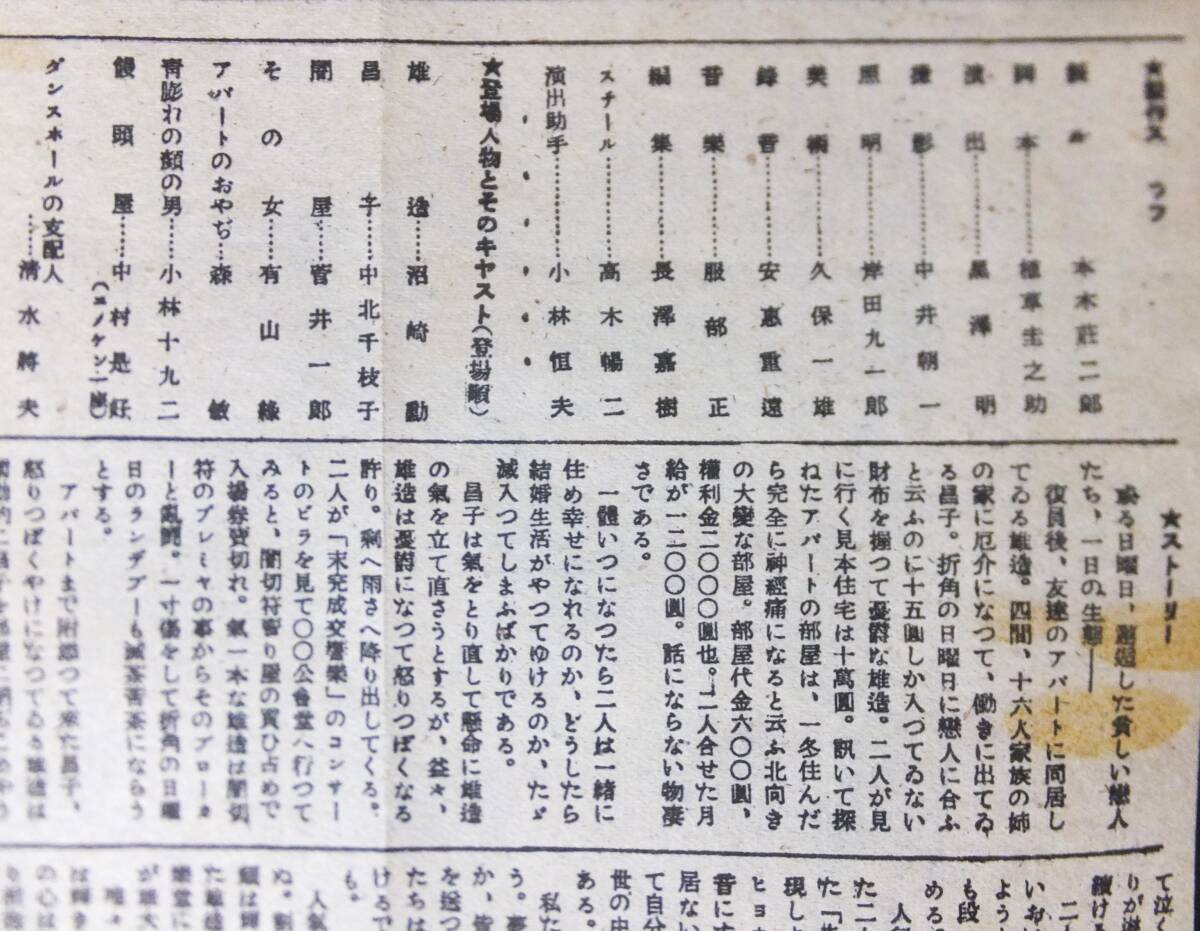 ★製作スタッフ
製作……本木莊二郎
脚本……植草圭之助
演出……黒澤明
撮影……中井朝一
照明……岸田九一郎
美術……久保一雄
錄音……安惠重遠
音樂……服部正
編集……長澤嘉樹
スチール……高木暢二
演出助手……小林恒夫
★登場人物とそのキヤスト(登場順)
雄造……沼崎勳
昌子……中北千枝子
闇屋……菅井一郎
その女……有山緑
アパートのおやぢ……森敏
靑膨れの顏の男……小林十九二
饅頭屋……中村是好
(エノケン一座)
ダンスホールの支配人
……淸水將夫
★ストーリー
或る日曜日、
した貧しい戀人
たち、一日の生態――
復員後、友達のアパートに同居し
てゐる雄造。四間、十六人家族の姉
の家に厄介になつて、働きに出てゐ
る昌子。折角の日曜日に戀人に合ふ
と云ふのに十五圓しか入つてゐない
財布を握つて憂爵な雄造。二人が見
に行く見本住宅は十萬圓。訊いて探
ねたアパートの部屋は、一冬住んだ
ら完全に神經痛になると云ふ北向き
の大變な部屋。部屋代金六〇〇圓、
權利金二〇〇〇圓也。二人合せた月
給が一二〇〇圓。話にならない物凄
さである。
一體いつになつたら二人は一緒に
住め幸せになれるのか、どうしたら
結婚生活がやつてゆけるのか、たゞ
滅入つてしまふばかりである。
昌子は氣をとり直して懸命に雄造
の氣を立て直さうとするが、益々、
雄造は憂爵になつて怒りつぽくなる
許り。剩へ雨さへ降り出してくる。
二人が「未完成交響樂」のコンサー
トのビラを見て〇〇公會堂へ行つて
みると、闇切符賣り屋の買ひ占めで
入場券賣切れ。氣一本な雄造は闇切
符のプレミヤの事からそのブローカ
ーと亂鬪。一寸傷をして折角の日曜
日のランデブーも滅茶苦茶にならう
とする。
アパートまで附添つて來た昌子、
怒りつぽくやけになつてゐる雄造は
て泣く
續ける
も段
める
た二
た「
現し
居ない
て自分
世の中
ある。
私た
う。夢
か、皆
を送つ
たちは
けるで
も。
人氣